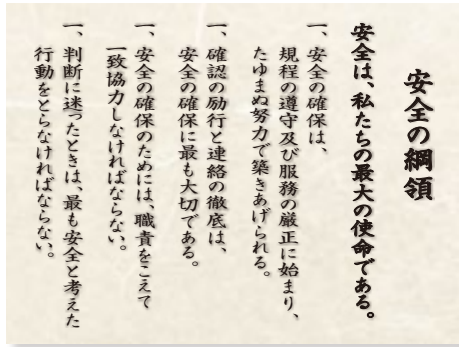 安全の綱領
安全は、私たちの最大の使命である。
一、安全の確保は、
規程の遵守及び服務の厳正に始まり、
たゆまぬ努力で築きあげられる。
一、確認の励行と連絡の徹底は、
安全の確保に最も大切である。
一、安全の確保のためには、職責をこえて
一致協力しなければならない。
一、判断に迷ったときは、最も安全と考えた
行動をとらなければならない。